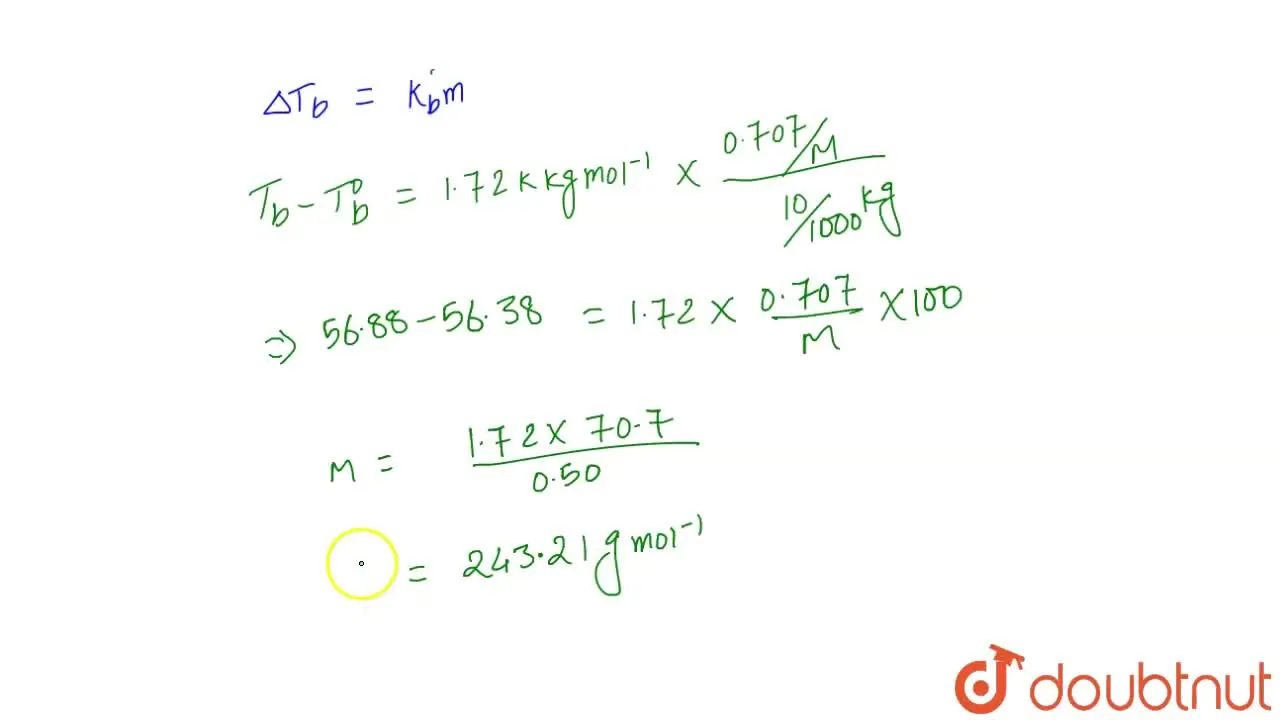 ΔT_b = K_b m
T_b − T_b^o = 1.72 K kg mol⁻¹ × (0.707/M)/(10/1000 kg)
⇒ 56.88 − 56.38 = 1.72 × 0.707/M × 100
M = (1.72 × 70.7)/0.50
= 243.21 g mol⁻¹
doubtnut